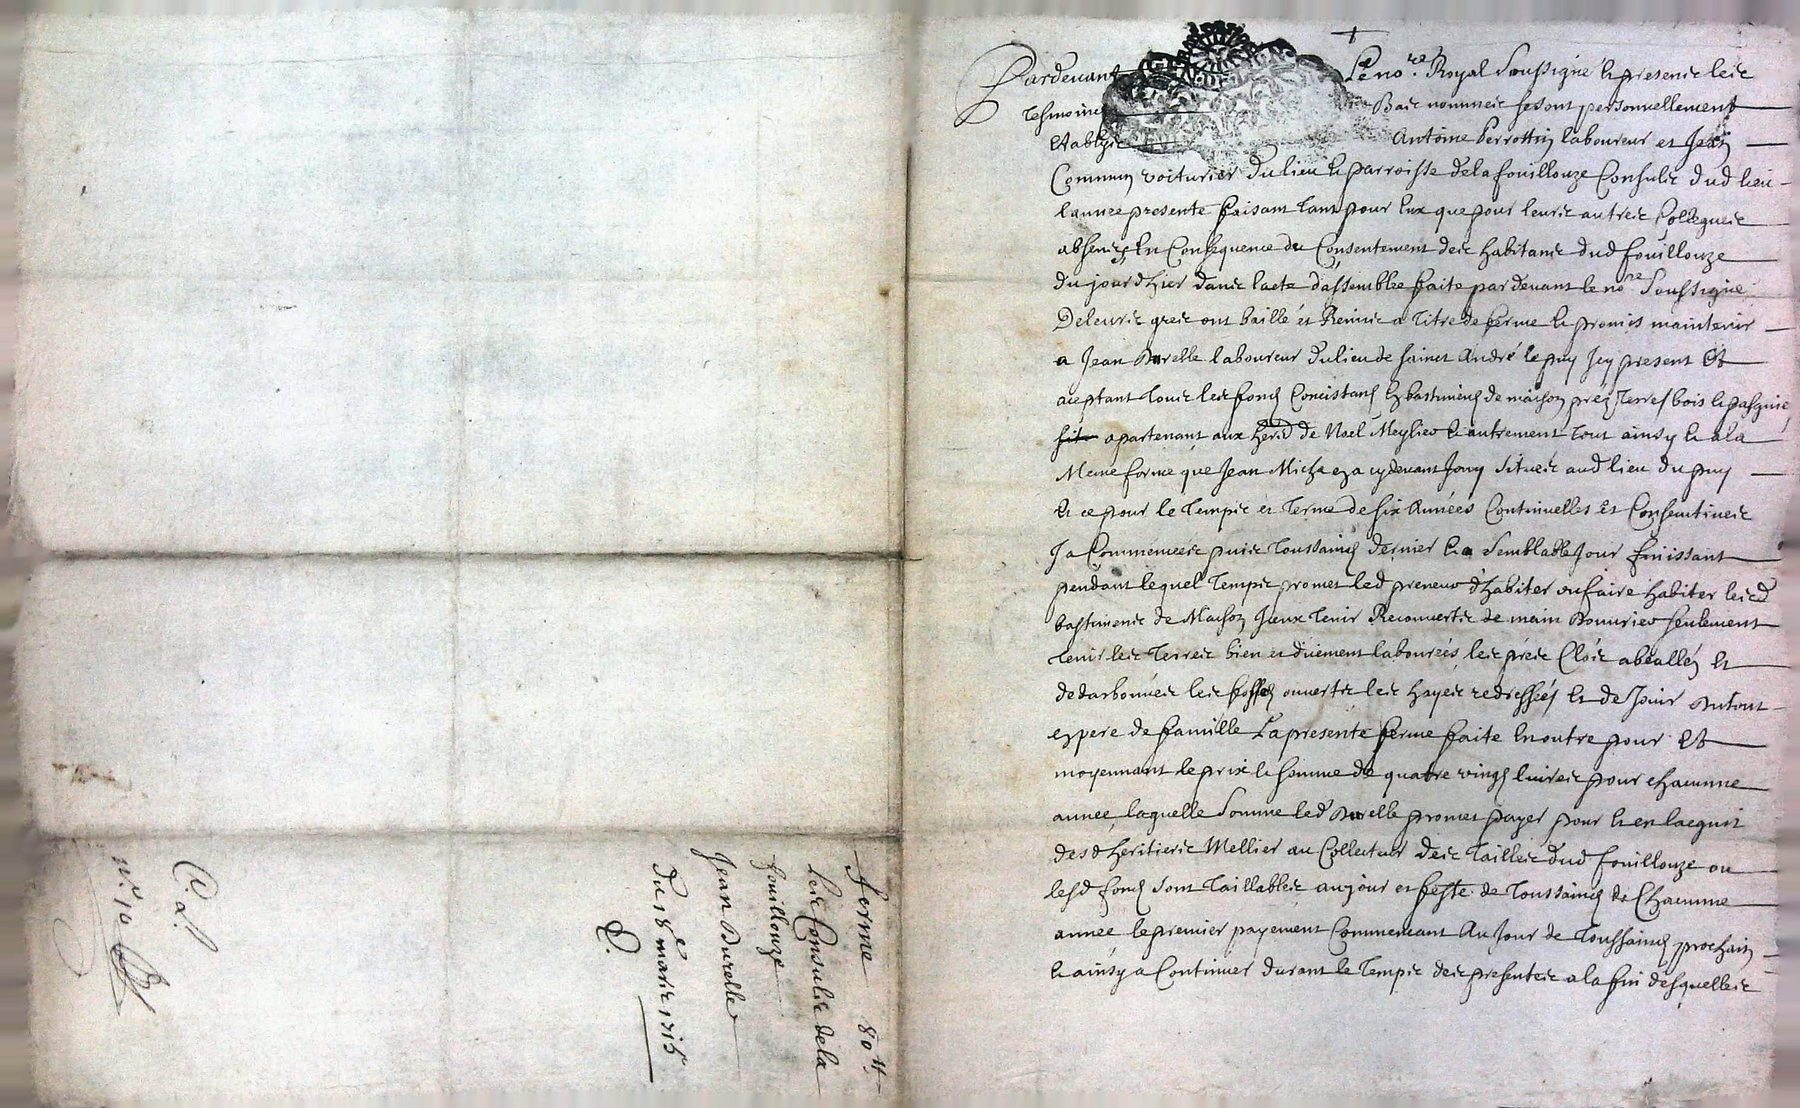 Pardevant Le no.re Royal soussigne & presence les
tesmoins Bas nommes se sont personnellement
Etablys Antoine Perrottin laboureur et Jean
Commun voiturier du lieu & parroisse de la fouillouze Consuls dud lieu
lannee presente faisant tant pour Eux que pour leurs autres Collegues
absents En Consequence du Consentement des habitans dud fouillouze
du jour dhier dans lacte dassemblee faite pardevant le no.re Soussigne
De leurs gres ont baille et Remis a titre de ferme & promis maintenir
a Jean Burelle laboureur du lieu de sainct André le puy Icy present Et
aceptant tous les fonds Concistans En bastimens de maison prez Terres bois & pasquis
apartenant aux herd de Noel Meylier & autrement tout ainsy & a la
Meme forme que Jean Micha en a cydevant Jouy situés aud lieu du puy
Et ce pour le temps et terme de six Années Continuelles et Consecutives
Ja Commencees puis toussaincs dernier & a Semblable Jour finissant
pendant lequel temps promet led preneur dhabiter ou faire habiter lesd
bastimens de Maison Iceux tenir Recouverts de main seulement
tenir les Terres bien et duement labourées les prés Clos abeallés Et
dedarbonnés les fossés ouverts les hayes redressées Et de Jouir du tout
en pere de famille La presente ferme faite En outre pour Et
moyennant le prix & somme de quatre vings livres pour chacunne
annee laquelle Somme led Burelle promet payer pour & en lacquit
desd heritiers Mellier au Collecteur des tailles dud fouillouze ou
lesd fonds sont taillables au jour et feste de toussaincs de Chacunne
année le premier payement Commencant Au Jour de toussaincs prochain
& ainsy a Continuer durant le temps des presentes a la fin desquelles
ferme 80tt
Les Consuls de la
fouillouze
Jean Burelle
Du 18e mars 1715
n.° 10